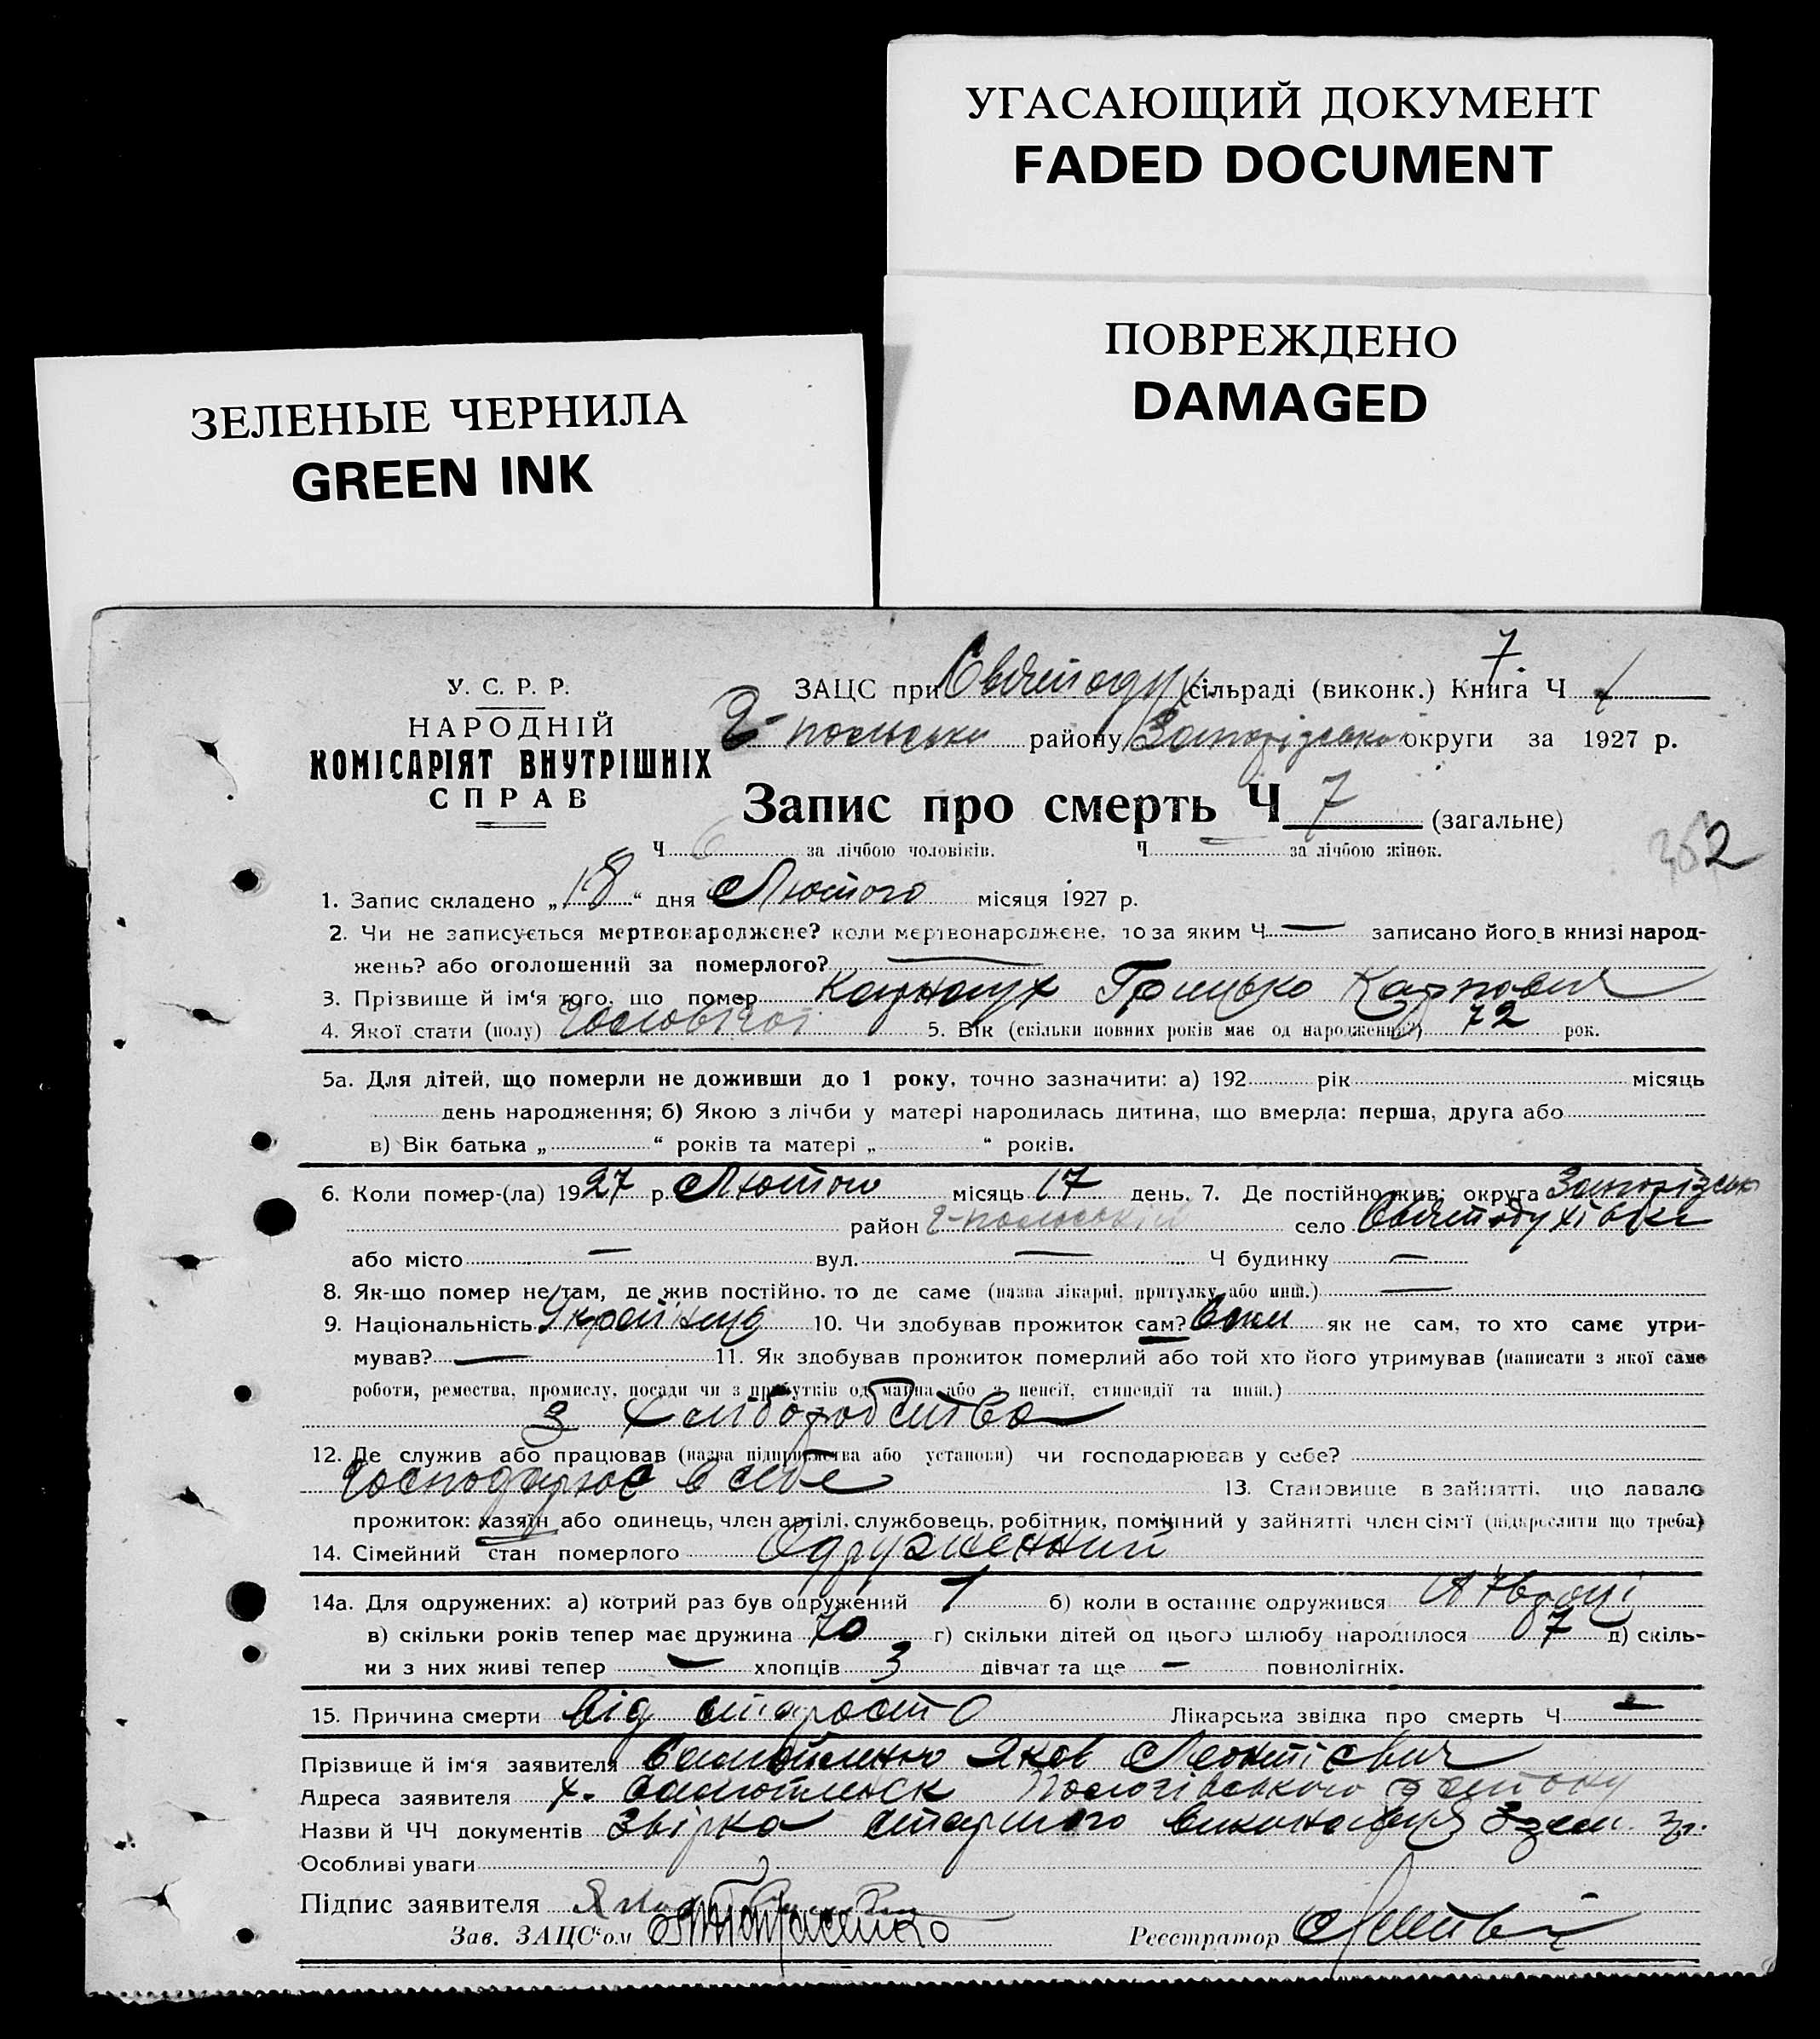 УГАСАЮЩИЙ ДОКУМЕНТ
FADED DOCUMENT
ПОВРЕЖДЕНО
DAMAGED
ЗЕЛЕНЫЕ ЧЕРНИЛА
GREEN INK
7.
У. С. Р. Р.
НАРОДНІЙ
КОМІСАРІЯТ ВНУТРІШНІХ
СПРАВ
ЗАЦС при Святодух сільраді (виконк.) Книга Ч
району Запорізської округи за 1927 р.
Запис про смерть Ч 7 (загальне)
362
Ч 6 за лічбою чоловіків. Ч — за лічбою жінок.
1. Запис складено „18“ дня Лютого місяця 1927 р.
2. Чи не записується мертвонароджене? коли мертвонароджене, то за яким Ч — записано його в книзі народ-
жень? або оголошений за померлого? —
3. Прізвище й ім‘я того, що помер Карнаух Грицько Карпович
4. Якої стати (полу) Чоловічої 5. Вік (скільки повних років має од народження?) 72 рок.
5а. Для дітей, що померли не доживши до 1 року, точно зазначити: а) 192 рік місяць
день народження; б) Якою з лічби у матері народилась дитина, що вмерла: перша, друга або
в) Вік батька „ “ років та матері „ “ років.
6. Коли помер-(ла) 1927 р. Лютого місяць 17 день. 7. Де постійно жив: округа Запорізсько
район село Святодухівка
або місто — вул. — Ч будинку —
8. Як-що помер не там, де жив постійно, то де саме (назва лікарні, притулку або инш.) —
9. Національність Україниц 10. Чи здобував прожиток сам? як не сам, то хто саме утри-
мував? — 11. Як здобував прожиток померлий або той хто його утримував (написати з якої саме
роботи, ремества, промислу, посади чи з прибутків од майна або з пенсії, стипендії та инш.)
З Хліборобства
12. Де служив або працював (назва підприємства або установи) чи господарював у себе?
Господарює в себе 13. Становище в зайнятті, що давало
прожиток: хазяїн або одинець, член артілі, службовець, робітник, помічний у зайнятті член сім‘ї (підкреслити що треба)
14. Сімейний стан померлого Одруженний
14а. Для одружених: а) котрий раз був одружений 1 б) коли в останнє одружився
в) скільки років тепер має дружина 70 г) скільки дітей од цього шлюбу народилося 7 д) скіль-
ки з них живі тепер — хлопців 3 дівчат та ще — повнолітніх.
15. Причина смерти від старости Лікарська звідка про смерть Ч —
Прізвище й ім‘я заявителя Яков Леонтієвич
Адреса заявителя х. Пологівського
Назви й ЧЧ документів Звірка старшого
Особливі уваги
Підпис заявителя
Зав. ЗАЦС‘ом Реєстратор